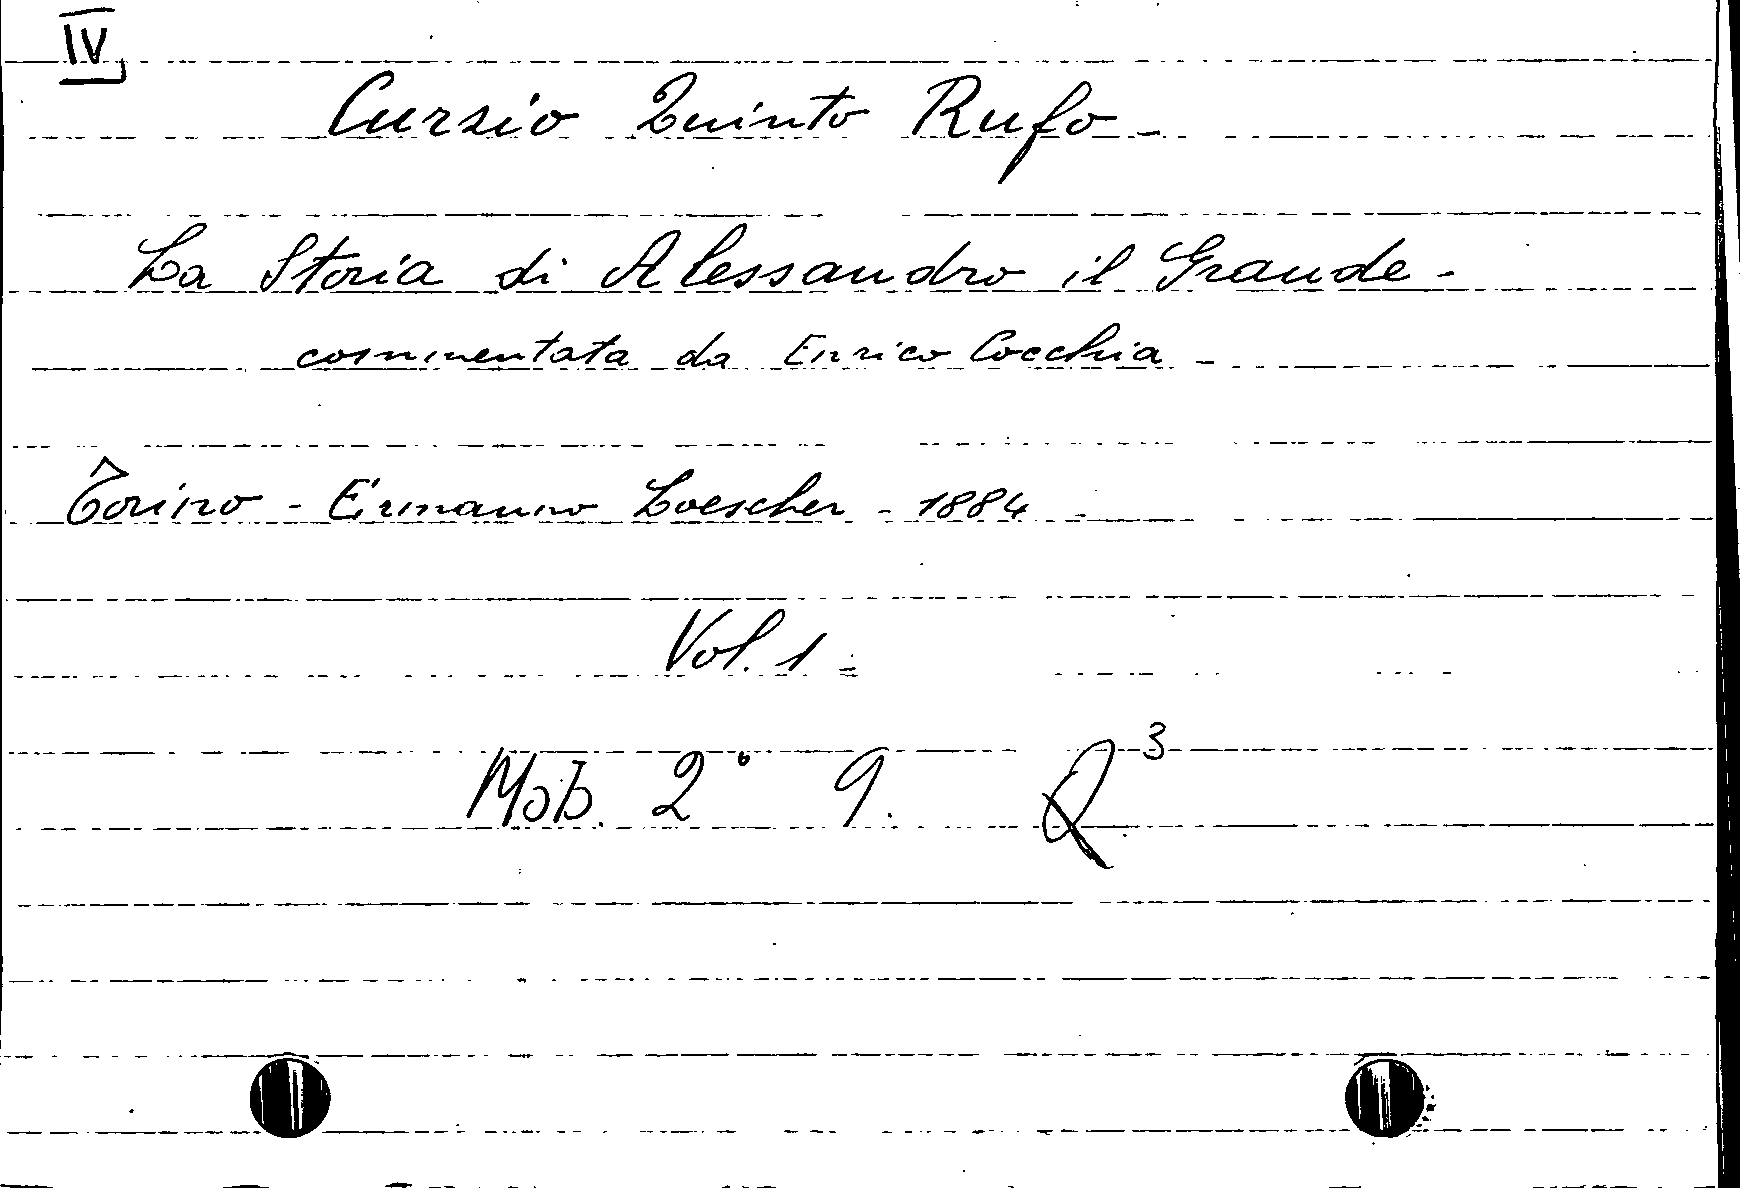 IV
Cursio Quinto Rufo -
La Storia di Alessandro il Grande -
commentata da Enrico Cocchia -
Torino - Ermanno Loescher - 1884 -
Vol. 1 =
Mob. 2° 9. Q³